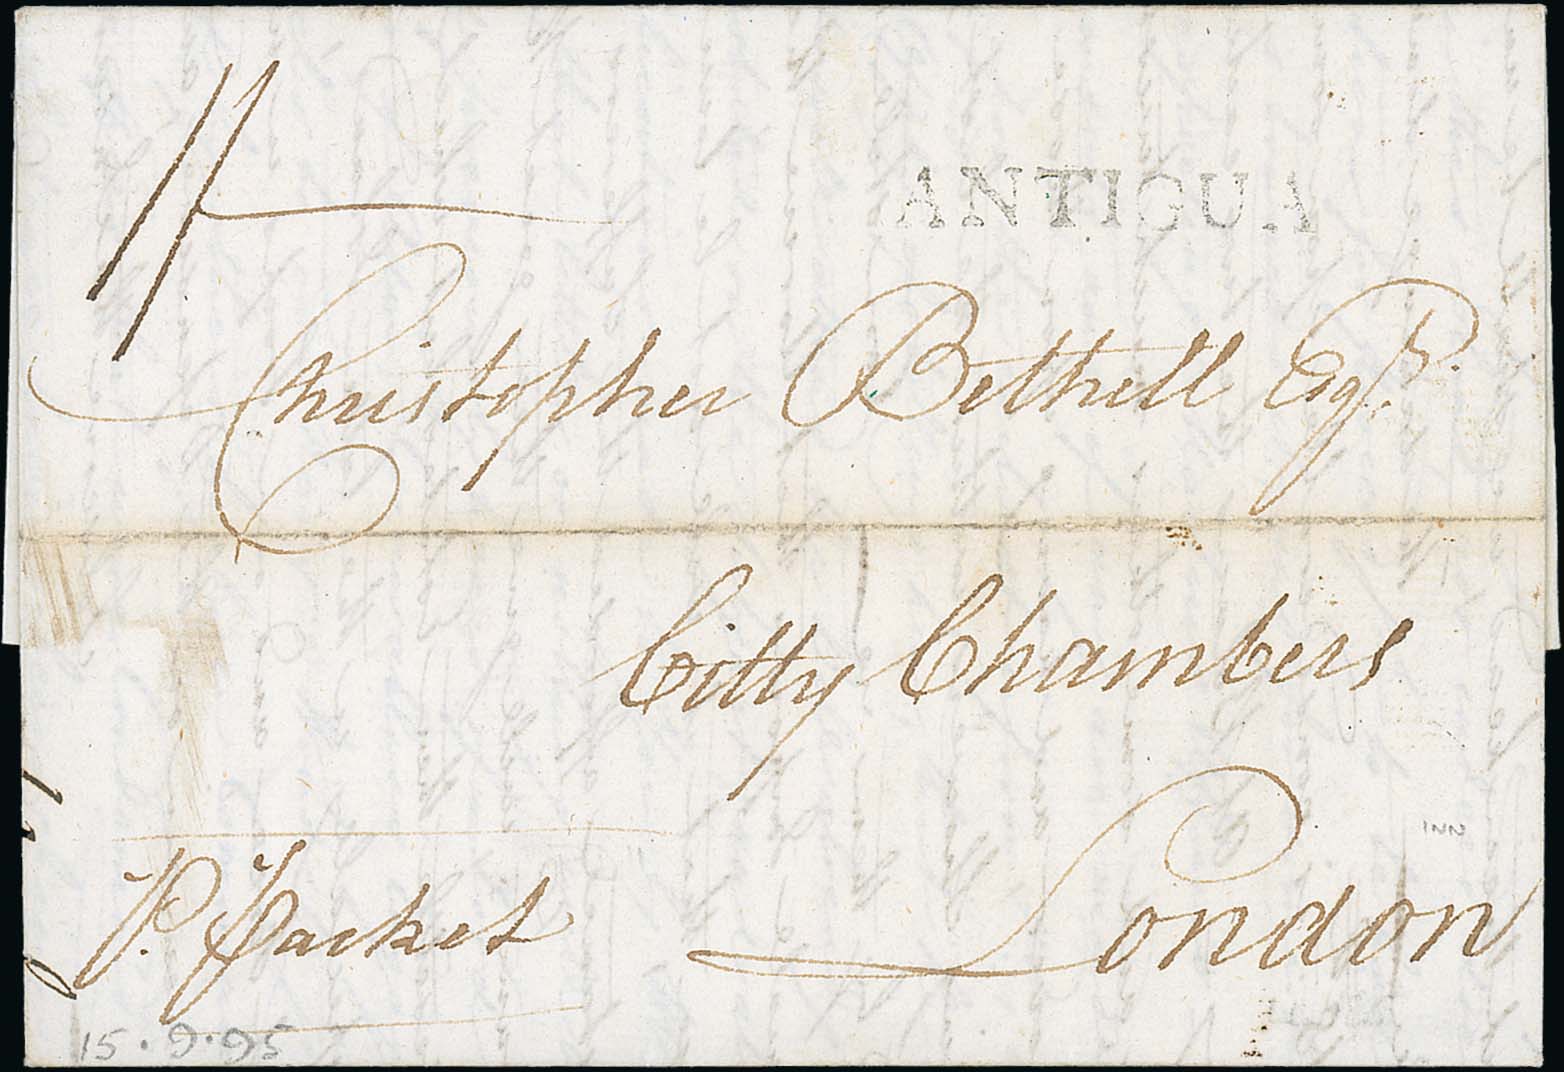 1/-
ANTIGUA
Christopher Bethell Esqr.
Citty Chambers
London
P. Packet
15.9.95
INN